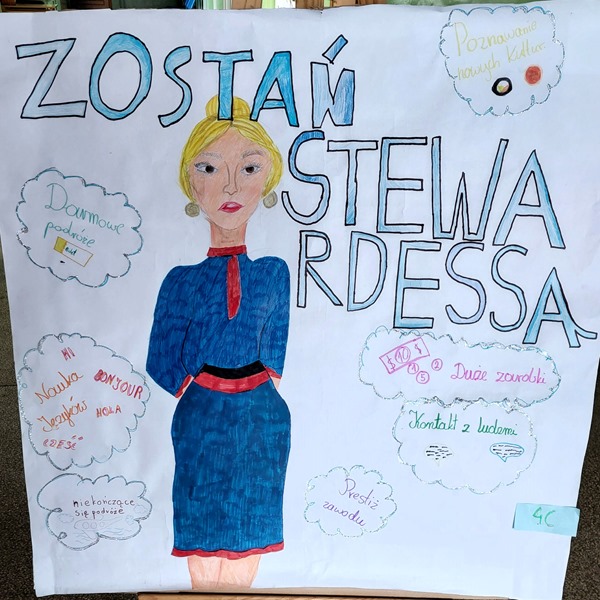 ZOSTAŃ
STEWA
RDESSĄ
Poznawanie
nowych kultur
Darmowe
podróże
HI
Nauka BONJOUR
Języków HOLA
niekończące
się podróże
10 $
1 2
5
Duże zarobki
Kontakt z ludźmi
Prestiż
zawodu
4C